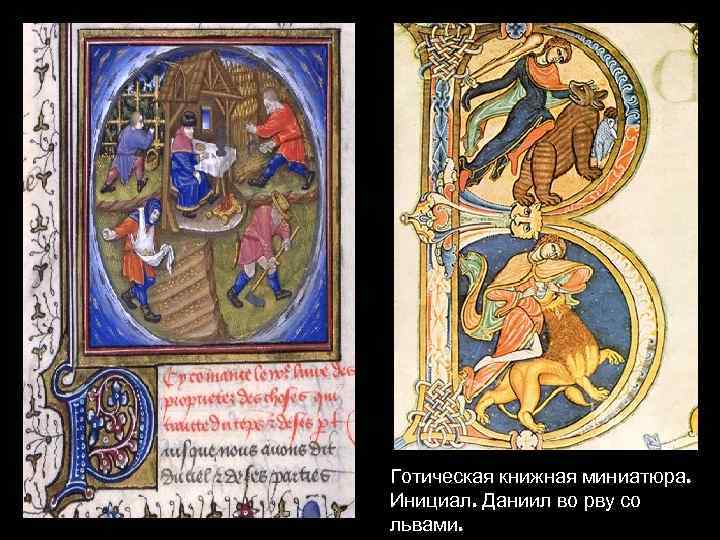 Cy comance le liure des
proprietez des choses qui
traitte du temps & de ses
Jusque nous auons dit
Du ciel & de ses parties
Готическая книжная миниатюра.
Инициал. Даниил во рву со
львами.